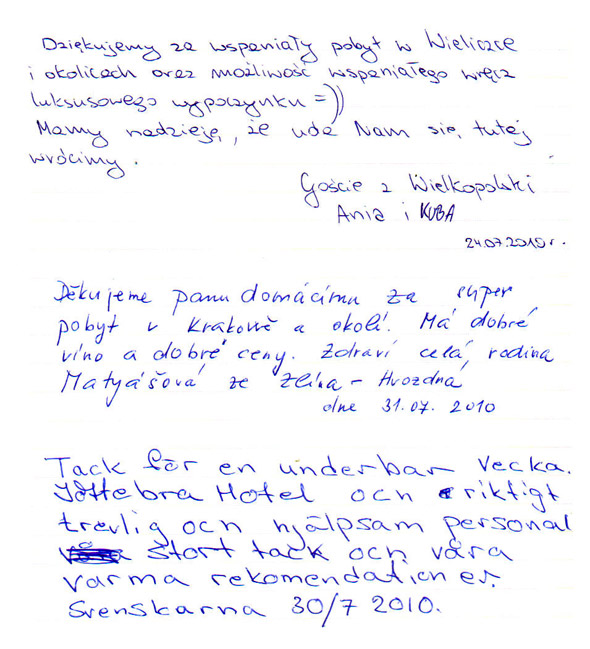 Dziękujemy za wspaniały pobyt w Wieliczce
i okolicach oraz możliwość wspaniałego wręcz
luksusowego wypoczynku =))
Mamy nadzieję, że uda Nam się tutej
wrócimy.
Goście z Wielkopolski
Ania i KUBA
24.07.2010 r.
Děkujeme panu domácímu za super
pobyt v Krakowě a okolí. Má dobré
víno a dobré ceny. Zdraví celá rodina
Matyášová ze Zlína - Hvozdná
dne 31.07. 2010
Tack för en underbar vecka.
Jöttebra Hotel och riktigt
trevlig och hjälpsam personal
stort tack och våra
varma rekomendationer.
Svenskarna 30/7 2010.